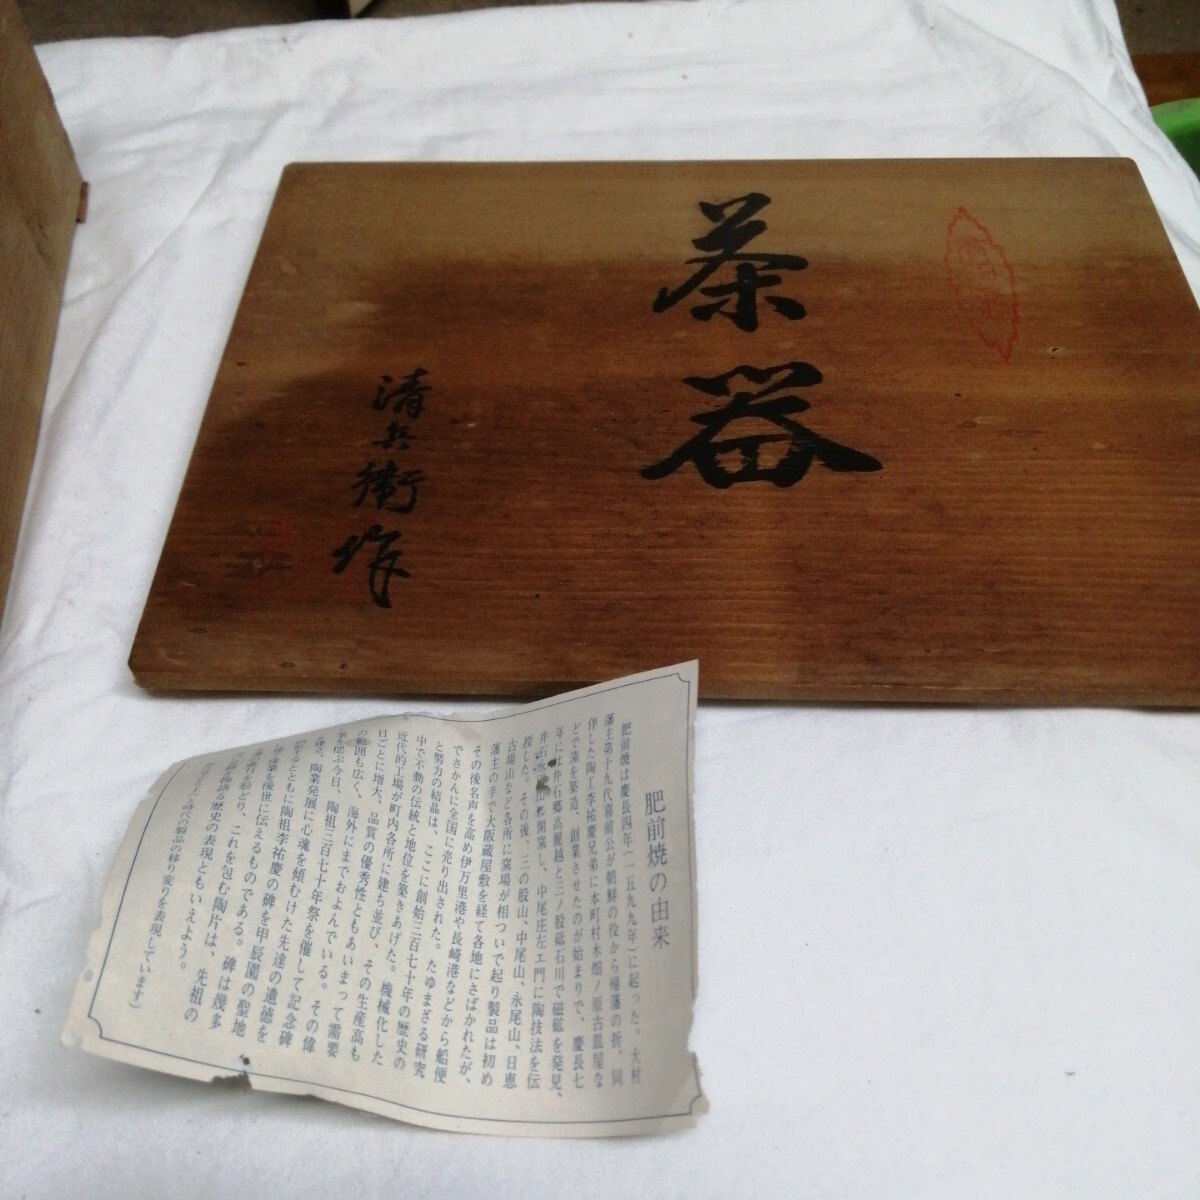 茶器
清兵衛作
肥前焼の由来
肥前焼は慶長四年(一五九九年)に起った。大村
藩主第十九代喜前公が朝鮮の役から帰藩の折、同
伴した陶工李祐慶兄弟に本町村木畑ノ原古皿屋な
どで窯を築造、創業させたのが始まりで、慶長七
年には井石郷高麗越と三ノ股砥石川で磁鉱を発見、
開窯し、中尾庄左エ門に陶技法を伝
授した。その後、三の股山、中尾山、永尾山、日恵
古場山など各所に窯場が相ついで起り製品は初め
藩主の手で大阪蔵屋敷を経て各地にさばかれたが、
その後名声を高め伊万里港や長崎港などから船便
でさかんに全国に売り出された。たゆまざる研究
と努力の結晶は、ここに創始三百七十年の歴史の
中で不動の伝統と地位を築きあげた。機械化した
近代的工場が町内各所に建ち並び、その生産高も
日ごとに増大、品質の優秀性ともあいまって需要
の範囲も広く、海外にまでおよんでいる。その偉
業を偲ぶ今日、陶祖三百七十年祭を催して記念碑
を建立、陶業発展に心魂を傾むけた先達の遺徳を
するとともに陶祖李祐慶の碑を甲辰園の聖地
偉業を後世に伝えるものである。碑は幾多
を形どり、これを包む陶片は、先祖の
を物語る歴史の表現ともいえよう。
時代の製品の移り変りを表現しています)